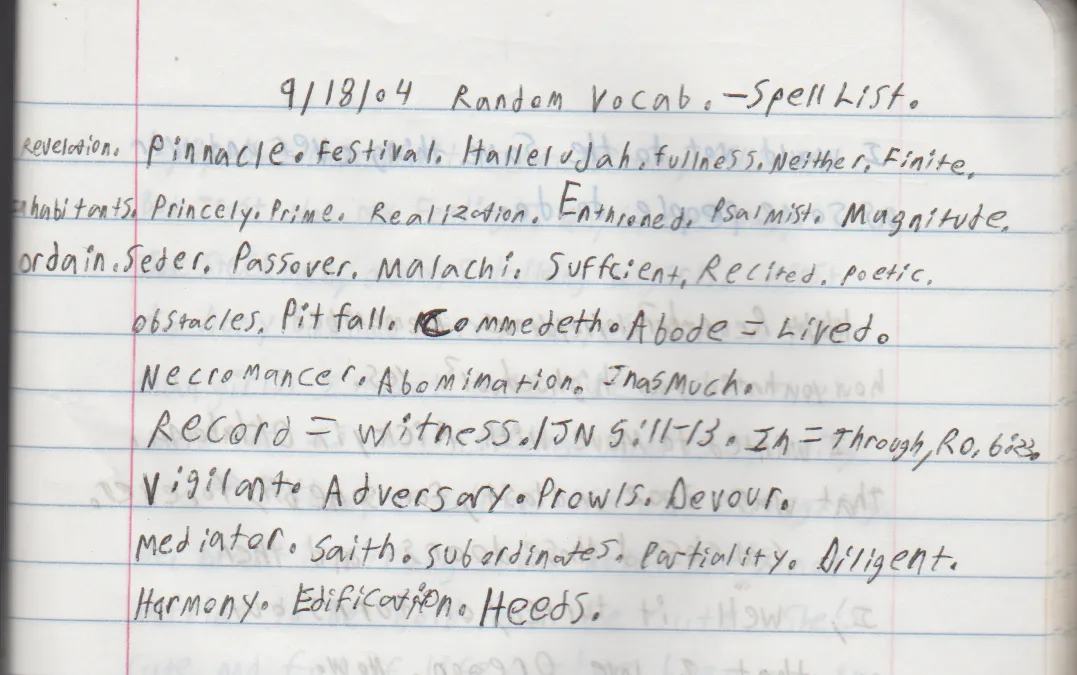 9/18/04 Random Vocab. - Spell List.
Revelation. Pinnacle. Festival. Hallelujah. fullness. Neither. Finite.
inhabitants. Princely. Prime. Realization. Enthroned. Psalmist. Magnitude.
ordain. Seder. Passover. Malachi. Suffcient, Recited. poetic.
obstacles. Pitfall. Commedeth. Abode = Lived.
Necromancer. Abomination. Inasmuch.
Record = witness. 1JN 5:11-13. In = Through, RO. 6:23.
Vigilant. Adversary. Prowls. Devour.
Mediator. Saith. subordinates. Partiality. Diligent.
Harmony. Edification. Heeds.